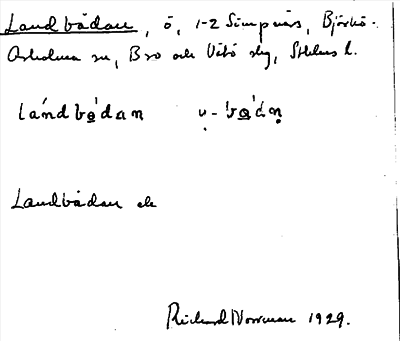 Landbådan, ö, 1-2 Simpnäs, Björkö-
Arholma sn, Bro och Vätö skg, Sthlms l.
låndbo̱'dan ṿ-'bo̱'dṇ
Landbådan ek
Rickard Norrman 1929.